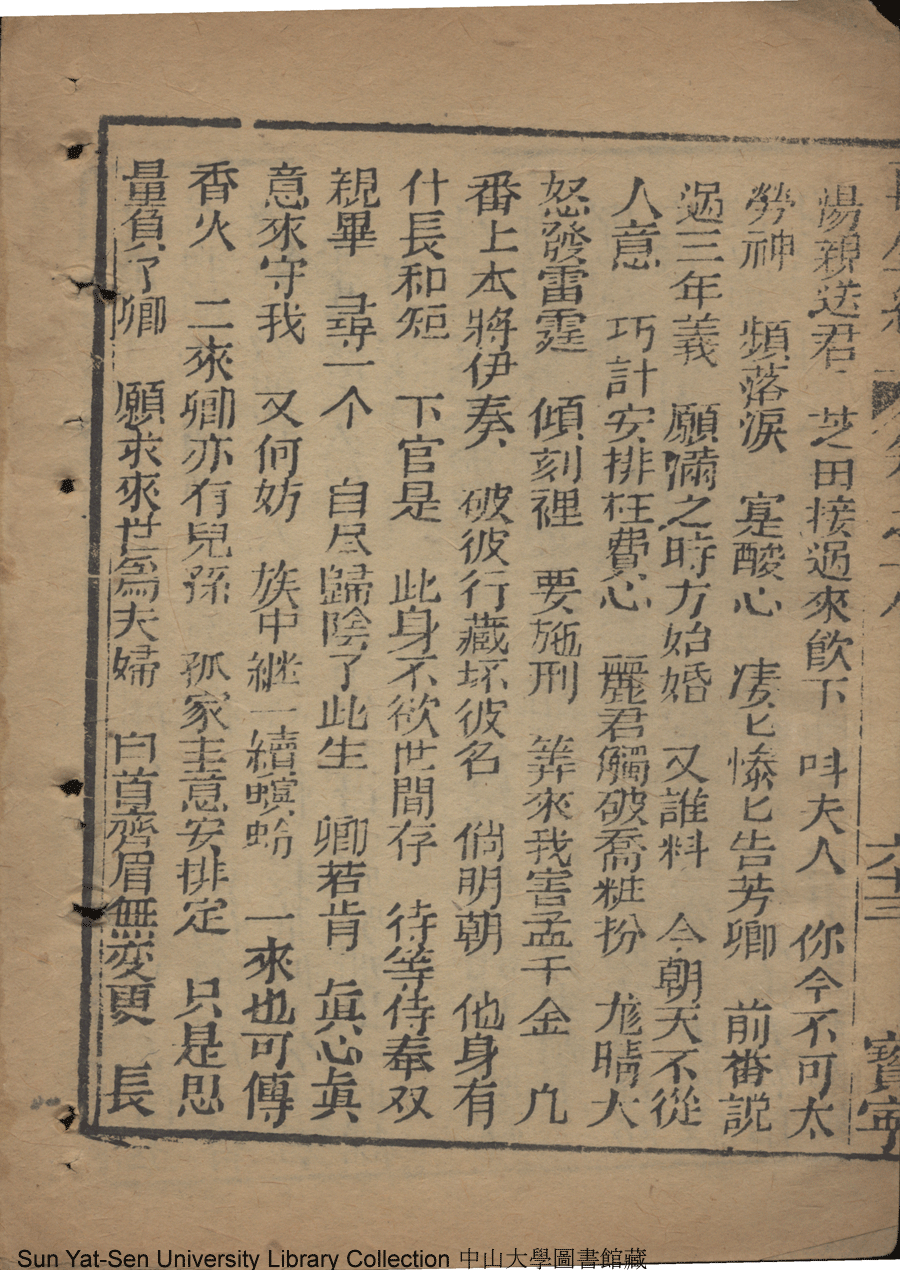 六十三
寳宁
湯親送君 芝田接過來飲下 呌夫人 你今不可太
勞神 頻落淚 寔酸心 凄匕慘匕告芳卿 前番説
過三年義 願滿之時方始婚 又誰料 今朝天不從
人意 巧計安排枉費心 麗君觸破喬粧扮 尨睛大
怒發雷霆 傾刻裡 要施刑 筭來我害孟千金 几
番上本將伊奏 破彼行藏坏彼名 倘明朝 他身有
什長和短 下官是 此身不欲世間存 待等侍奉双
親畢 尋一个 自尽歸陰了此生 卿若肯 眞心眞
意來守我 又何妨 族中継一續螟蛉 一來也可傳
香火 二來卿亦有兒孫 孤家主意安排定 只是思
量負了卿 願求來世為夫婦 白首齊眉無变更 長
Sun Yat-Sen University Library Collection 中山大學圖書館藏